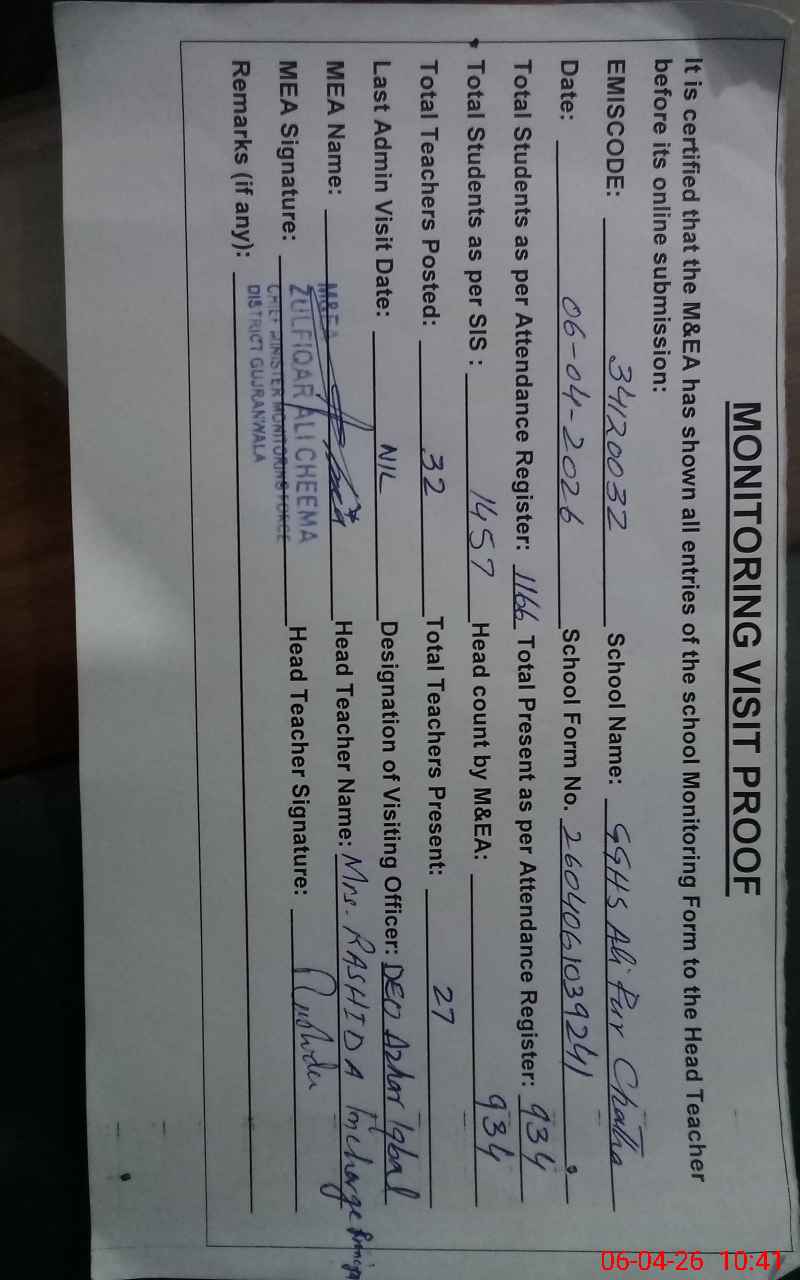 MONITORING VISIT PROOF
It is certified that the M&EA has shown all entries of the school Monitoring Form to the Head Teacher
before its online submission:
EMISCODE: 34120032 School Name: GGHS Ali Pur Chatha
Date: 06-04-2026 School Form No. 2604061039241
Total Students as per Attendance Register: 1166 Total Present as per Attendance Register: 934
Total Students as per SIS : 1457 Head count by M&EA: 934
Total Teachers Posted: 32 Total Teachers Present: 27
Last Admin Visit Date: NIL Designation of Visiting Officer: DEO Azhar Iqbal
MEA Name: M&EA Head Teacher Name: Mrs. RASHIDA Incharge
MEA Signature: ZULFIQAR ALI CHEEMA Head Teacher Signature: Rashida
CHIEF MINISTER MONITORING FORCE
Remarks (if any): DISTRICT GUJRANWALA
06-04-26 10:41